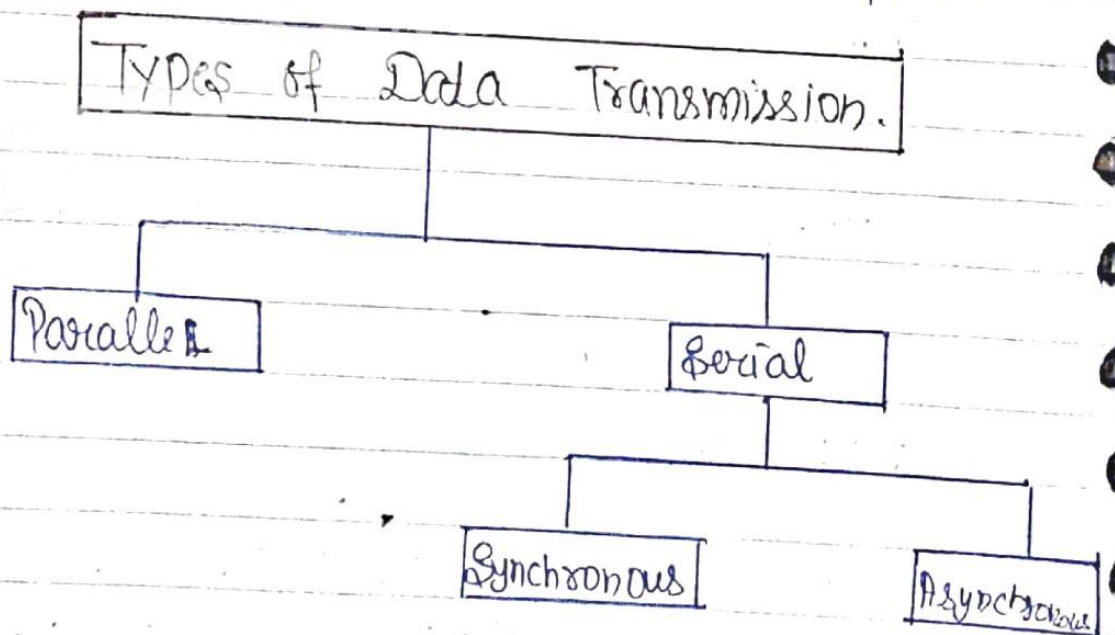 Types of Data Transmission.
Parallel
Serial
Synchronous
Asynchronous